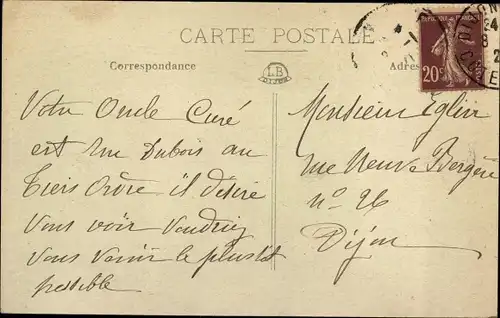 CARTE POSTALE
Correspondance
LB
DIJON
REPUBLIQUE FRANÇAISE
20c
Votre Oncle Curé
est rue Dubois au
Tiers Ordre il désire
vous voir voudriez
vous venir le plus tôt
possible
Monsieur Eglin
rue Neuve Bergère
n° 26
Dijon